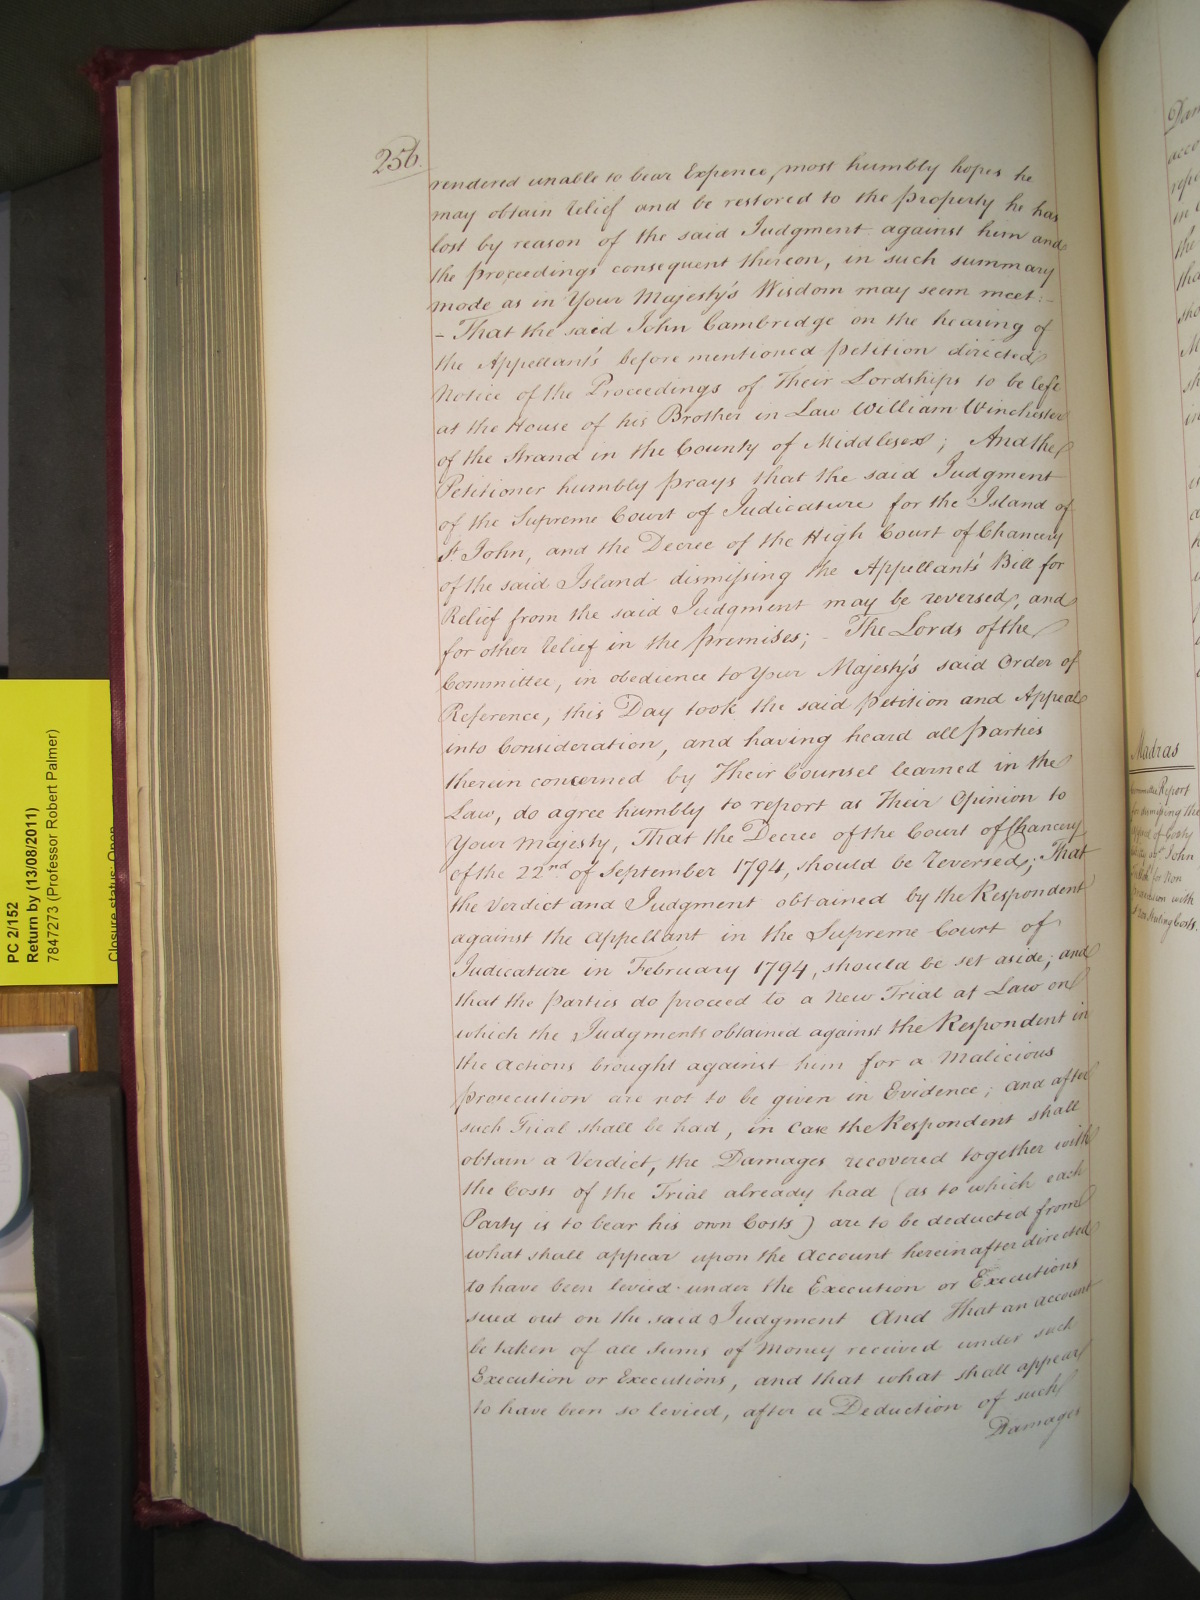 256.
rendered unable to bear Expence, most humbly hopes he
may obtain relief and be restored to the property he has
lost by reason of the said Judgment against him and
the proceedings consequent thereon, in such summary
mode as in Your Majesty's Wisdom may seem meet:-
- That the said John Cambridge on the hearing of
the Appellant's before mentioned petition directed
Notice of the Proceedings of Their Lordships to be left
at the House of his Brother in Law William Winchester
of the Strand in the County of Middlesex; And the
Petitioner humbly prays that the said Judgment
of the Supreme Court of Judicature for the Island of
St. John, and the Decree of the High Court of Chancery
of the said Island dismissing the Appellant's Bill for
Relief from the said Judgment may be reversed, and
for other relief in the premises; - The Lords of the
Committee, in obedience to Your Majesty's said Order of
Reference, this Day took the said petition and Appeal
into Consideration, and having heard all Parties
therein concerned by Their Counsel learned in the
Law, do agree humbly to report as Their Opinion to
Your Majesty, That the Decree of the Court of Chancery
of the 22nd of September 1794, should be reversed; That
the Verdict and Judgment obtained by the Respondent
against the Appellant in the Supreme Court of
Judicature in February 1794, should be set aside; and
that the Parties do proceed to a New Trial at Law on
which the Judgments obtained against the Respondent in
the Actions brought against him for a Malicious
prosecution are not to be given in Evidence; and after
such Trial shall be had, in Case the Respondent shall
obtain a Verdict, the Damages recovered together with
the Costs of the Trial already had (as to which each
Party is to bear his own Costs) are to be deducted from
what shall appear upon the Account hereinafter directed
to have been levied under the Execution or Executions
sued out on the said Judgment And That an account
be taken of all Sums of Money received under such
Execution or Executions, and that what shall appear
to have been so levied, after a Deduction of such
Damages
PC 2/152
Return by (13/08/2011)
7847273 (Professor Robert Palmer)
Closure status: Open
Madras
Report
dismissing the
John
for Non
with
Costs.